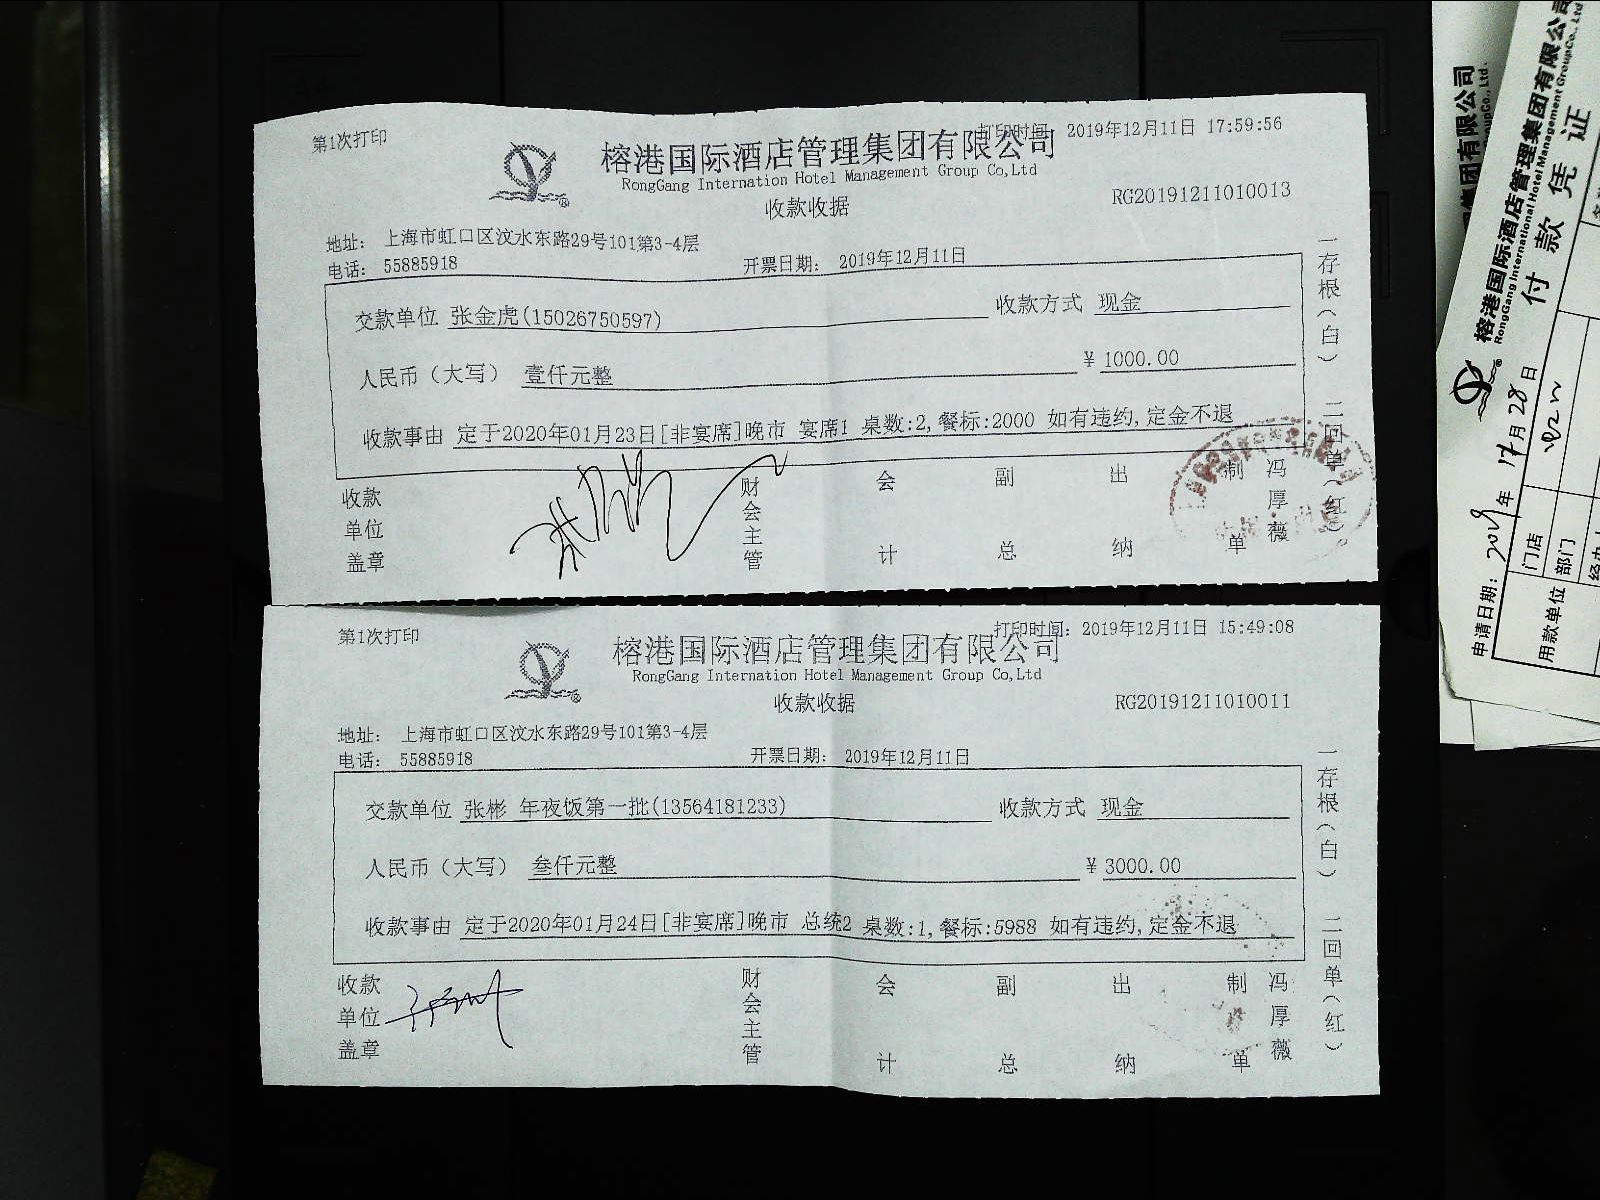 第1次打印
打印时间 2019年12月11日 17:59:56
榕港国际酒店管理集团有限公司
RongGang Internation Hotel Management Group Co,Ltd
收款收据
RG20191211010013
地址: 上海市虹口区汶水东路29号101第3-4层
电话: 55885918
开票日期: 2019年12月11日
交款单位 张金虎(15026750597)
收款方式 现金
人民币(大写) 壹仟元整
¥ 1000.00
收款事由 定于2020年01月23日[非宴席]晚市 宴席1 桌数:2,餐标:2000 如有违约,定金不退
一存根(白) 二回单(红)
收款单位盖章
财会主管
会计
副总
出纳
制单
冯厚薇
第1次打印
打印时间: 2019年12月11日 15:49:08
榕港国际酒店管理集团有限公司
RongGang Internation Hotel Management Group Co,Ltd
收款收据
RG20191211010011
地址: 上海市虹口区汶水东路29号101第3-4层
电话: 55885918
开票日期: 2019年12月11日
交款单位 张彬 年夜饭第一批(13564181233)
收款方式 现金
人民币(大写) 叁仟元整
¥ 3000.00
收款事由 定于2020年01月24日[非宴席]晚市 总统2 桌数:1,餐标:5988 如有违约,定金不退
一存根(白) 二回单(红)
收款单位盖章
财会主管
会计
副总
出纳
制单
冯厚薇
集团有限公司
Group Co., Ltd.
榕港国际酒店管理集团有限公司
RongGang International Hotel Management Group Co., Ltd
付款凭证
申请日期: 2019年12月28日
用款单位
门店
部门